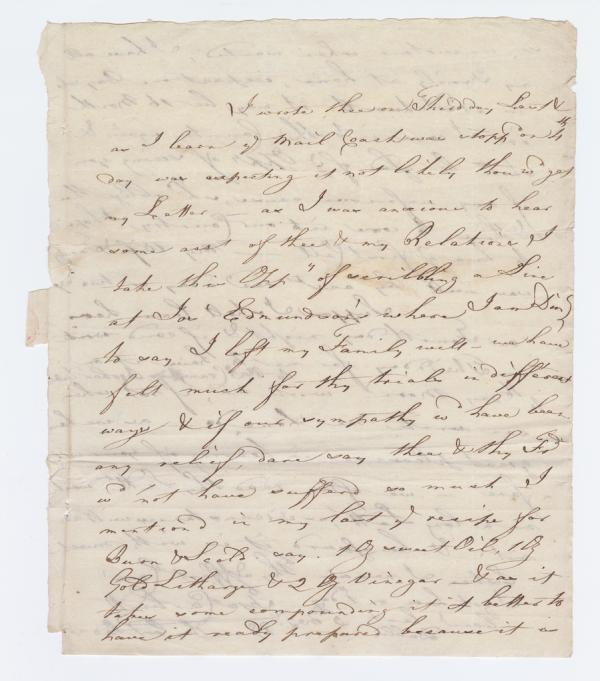 I wrote thee on Third day last &
as I learn ye Mail Coach was stopp'd on 4th
day was expecting it not likely thou wd get
my Letter — as I was anxious to hear
some acct of thee & my Relations I
take this Oppy of scribbling a Line
at Jos Edmundson's where I am
to say I left my Family well — we have
felt much for thy trials in different
ways & if our sympathy wd have been
any relief, dare say thee & thy Fd
wd not have sufferd so much I
mentiond in my last ye recipe for
Burn & Scald say. 1 Oz sweet Oil, 1 Oz
Gold Litharge & 2 Oz Vinegar — & as it
takes some compounding it is better to
have it ready prepared because it is